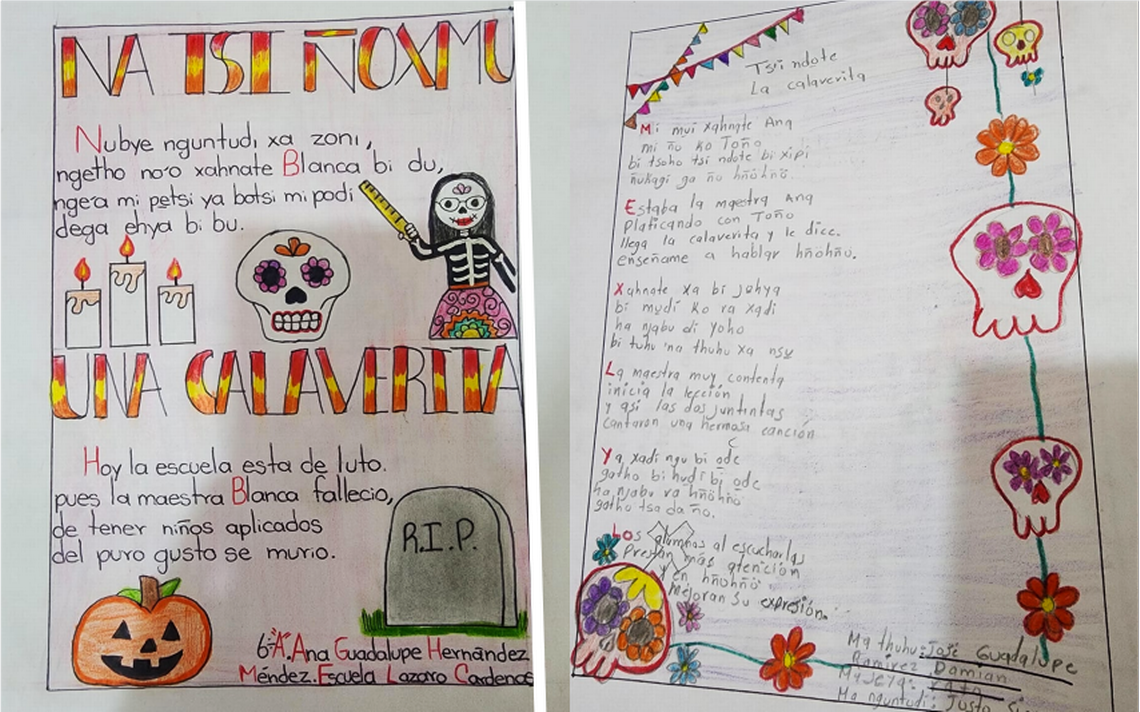 NA TSI ÑOXMU
Nubye nguntudi xa zoni,
ngetho no'o xahnate Blanca bi du,
nge'a mi petsi ya botsi mi podi
dega ehya bi bu.
UNA CALAVERITA
Hoy la escuela esta de luto.
pues la maestra Blanca fallecio,
de tener niños aplicados
del puro gusto se murio.
R.I.P.
6° "A". Ana Guadalupe Hernández
Méndez. Escuela Lazaro Cardenas
Tsi ndote
La calaverita
Mi mui xahnate Ana
mi ño ko Toño
bi tsoho tsi ndote bi xipi
ñukagi ga ñu hñöhño.
Estaba la maestra Ana
platicando con Toño
llega la calaverita y le dice.
enseñame a hablar hñöhñu.
Xahnate xa bi johya
bi mudi ko ra xadi
ha njabu di yoho
bi tuhu 'na thuhu xa nsu
La maestra muy contenta
inicia la lección
y asi las dos juntintas
cantaron una hermosa canción
Ya xadi ngu bi ode
gatho bi hudi bi ode
ha njabu ra hñöhño
gatho tsa da ño.
Los alumnos al escucharlas
Prestan más atención
y en hñöhñö
Mejoran su expresión.
Ma thuhu: José Guadalupe
Ramirez Damian
Ma jeya:
Ma nguntudi: Justo